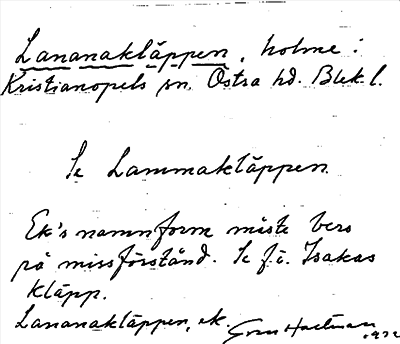 Lananakläppen, holme i
Kristianopels sn. Östra hd. Blek l.
Se Lammakläppen.
Ek's namnform måste bero
på missförstånd. Se f.ö. Isakas
kläpp.
Lananakläppen, ek.